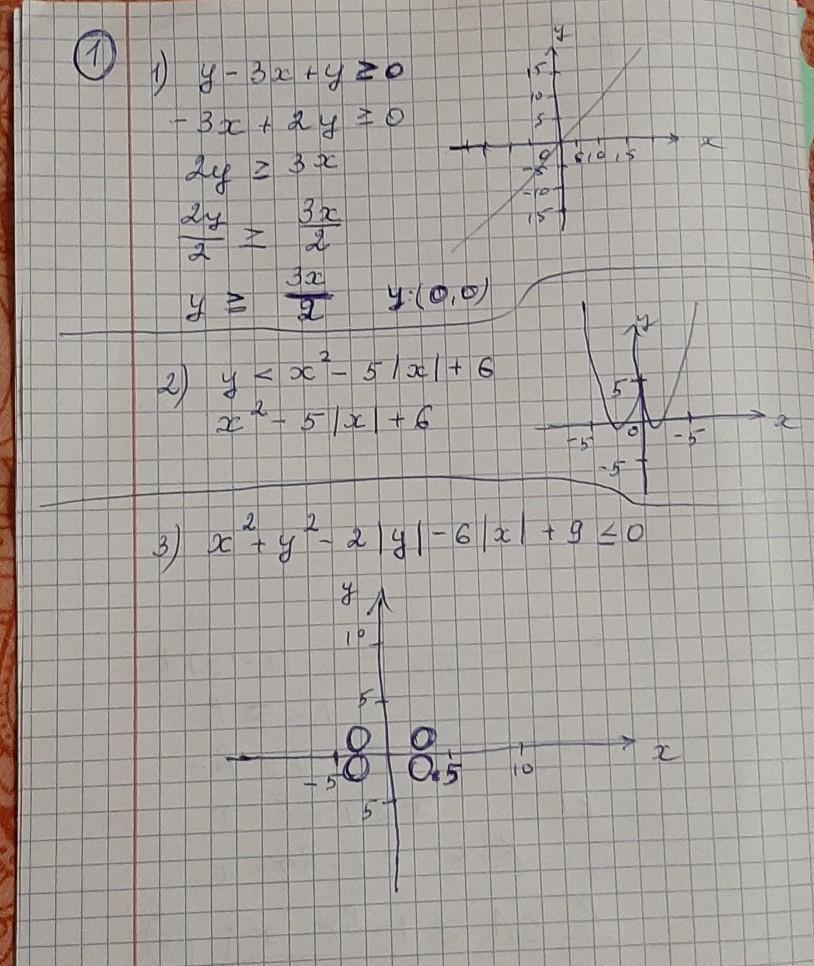 ①
1) y - 3x + y ≥ 0
- 3x + 2y ≥ 0
2y ≥ 3x
2y/2 ≥ 3x/2
y ≥ 3x/2 y:(0,0)
y
15
10
5
0 5 10 15 x
-5
-10
15
2) y < x² - 5|x| + 6
x² - 5|x| + 6
y
5
-5 0 -5 x
-5
3) x² + y² - 2|y| - 6|x| + 9 ≤ 0
y
10
5
-5 5 10 x
5